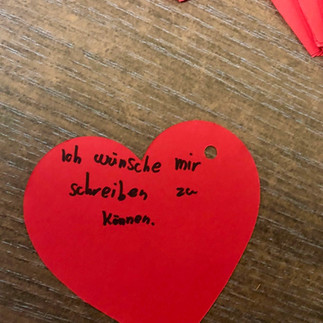 Ich wünsche mir
schreiben zu
können.